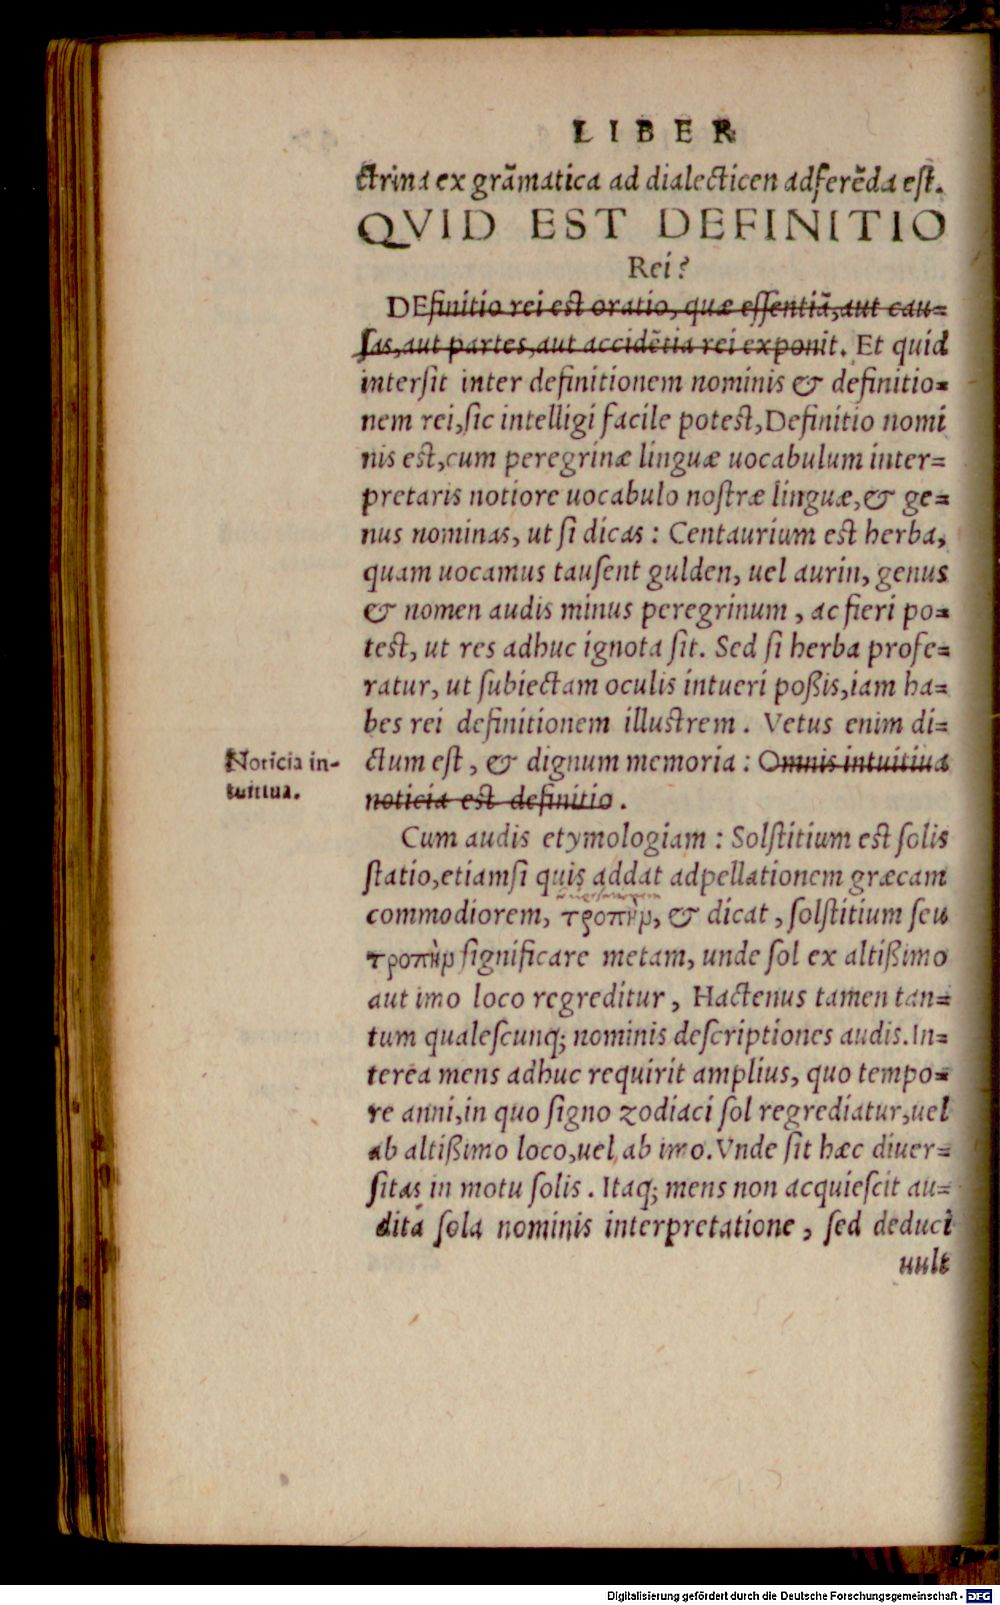 LIBER
ctrina ex grãmatica ad dialecticen adferẽda est.
QVID EST DEFINITIO
Rei?
DEfinitio rei est oratio, quæ essentiã, aut cau-
sas, aut partes, aut accidẽtia rei exponit. Et quid
intersit inter definitionem nominis & definitio-
nem rei, sic intelligi facile potest, Definitio nomi
nis est, cum peregrinæ linguæ uocabulum inter-
pretaris notiore uocabulo nostræ linguæ, & ge-
nus nominas, ut si dicas: Centaurium est herba,
quam uocamus tausent gulden, uel aurin, genus
& nomen audis minus peregrinum, ac fieri po-
test, ut res adhuc ignota sit. Sed si herba profe-
ratur, ut subiectam oculis intueri poßis, iam ha-
bes rei definitionem illustrem. Vetus enim di-
ctum est, & dignum memoria: Omnis intuitiua
noticia est definitio.
Noticia in-
tuitiua.
Cum audis etymologiam: Solstitium est solis
statio, etiamsi quis addat adpellationem græcam
commodiorem, τροπὴρ, & dicat, solstitium seu
τροπὴρ significare metam, unde sol ex altißimo
aut imo loco regreditur, Hactenus tamen tan-
tum qualescunq; nominis descriptiones audis. In-
terea mens adhuc requirit amplius, quo tempo-
re anni, in quo signo zodiaci sol regrediatur, uel
ab altißimo loco, uel ab imo. Vnde sit hæc diuer-
sitas in motu solis. Itaq; mens non acquiescit au-
dita sola nominis interpretatione, sed deduci
uult
Digitalisierung gefördert durch die Deutsche Forschungsgemeinschaft - DFG